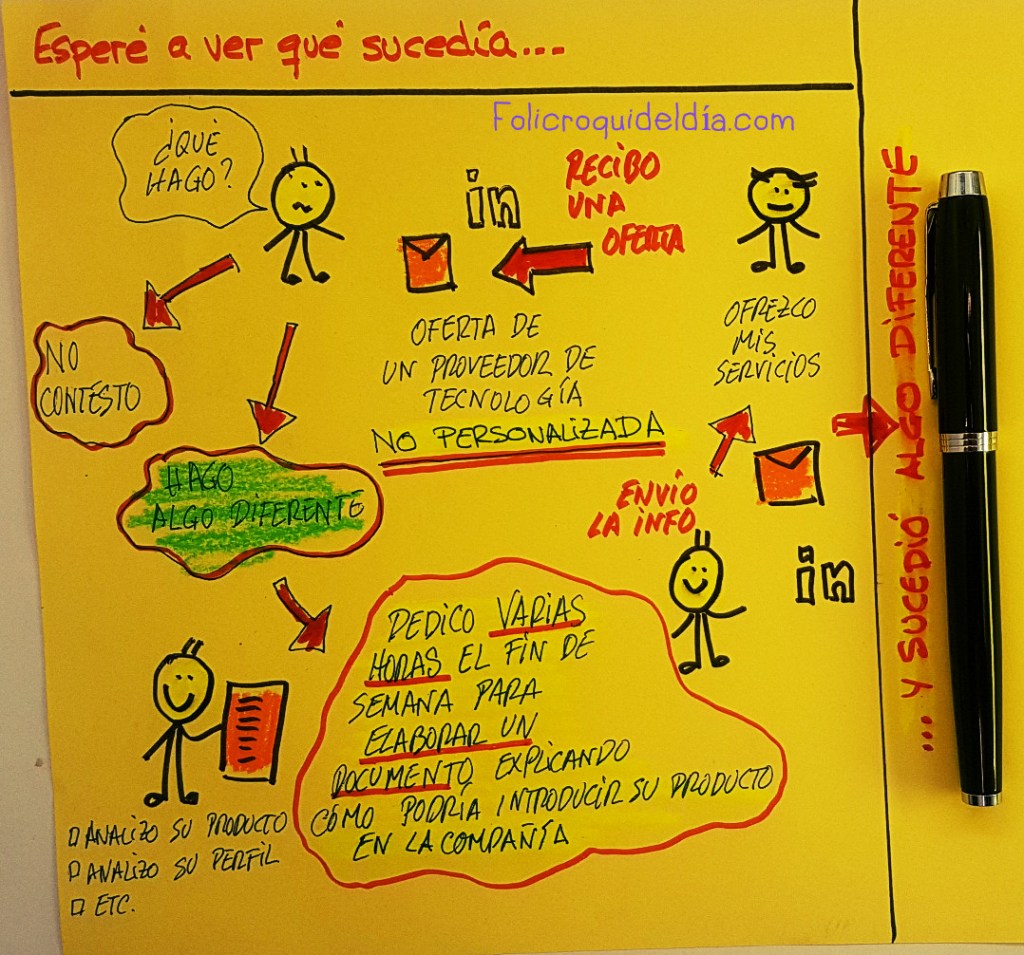 Esperé a ver qué sucedía...
Folicroquideldía.com
¿QUÉ
HAGO?
in
RECIBO
UNA
OFERTA
OFERTA DE
UN PROVEEDOR DE
TECNOLOGÍA
NO PERSONALIZADA
OFREZCO
MIS
SERVICIOS
NO
CONTESTO
HAGO
ALGO DIFERENTE
ENVÍO
LA INFO
in
DEDICO VARIAS
HORAS EL FIN DE
SEMANA PARA
ELABORAR UN
DOCUMENTO, EXPLICANDO
CÓMO PODRÍA INTRODUCIR SU PRODUCTO
EN LA COMPAÑÍA
ANALIZO SU PRODUCTO
ANALIZO SU PERFIL
ETC.
... Y SUCEDIÓ ALGO DIFERENTE